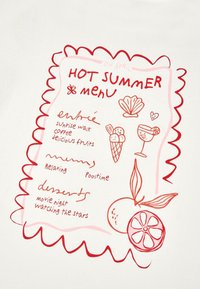 HOT SUMMER
& menu
entrée
sunrise walk
coffee
delicious fruits
menu
Relaxing Pooltime
desserts
movie night
watching the stars